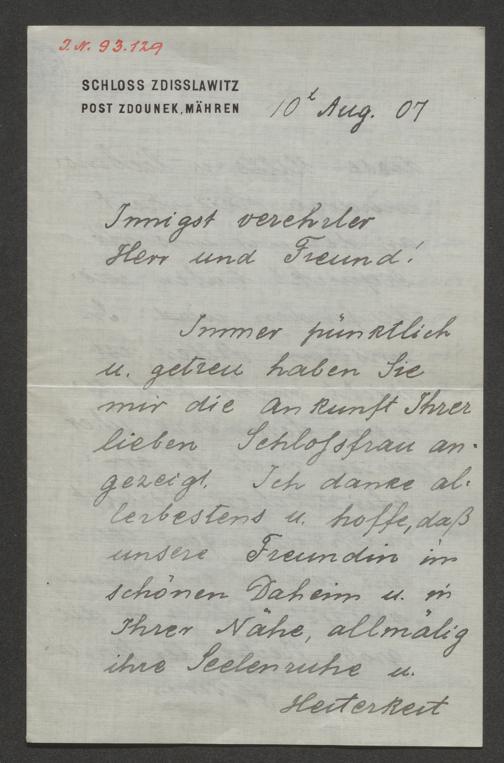 I.N. 93.129
SCHLOSS ZDISSLAWITZ
POST ZDOUNEK, MÄHREN
10t Aug. 07
Innigst verehrter
Herr und Freund!
Immer pünktlich
u. getreu haben Sie
mir die Ankunft Ihrer
lieben Schloßsfrau an-
gezeigt. Ich danke al-
lerbestens u. hoffe, daß
unsere Freundin im
schönen Daheim u. in
Ihrer Nähe, allmälig
ihre Seelenruhe u.
Heiterkeit